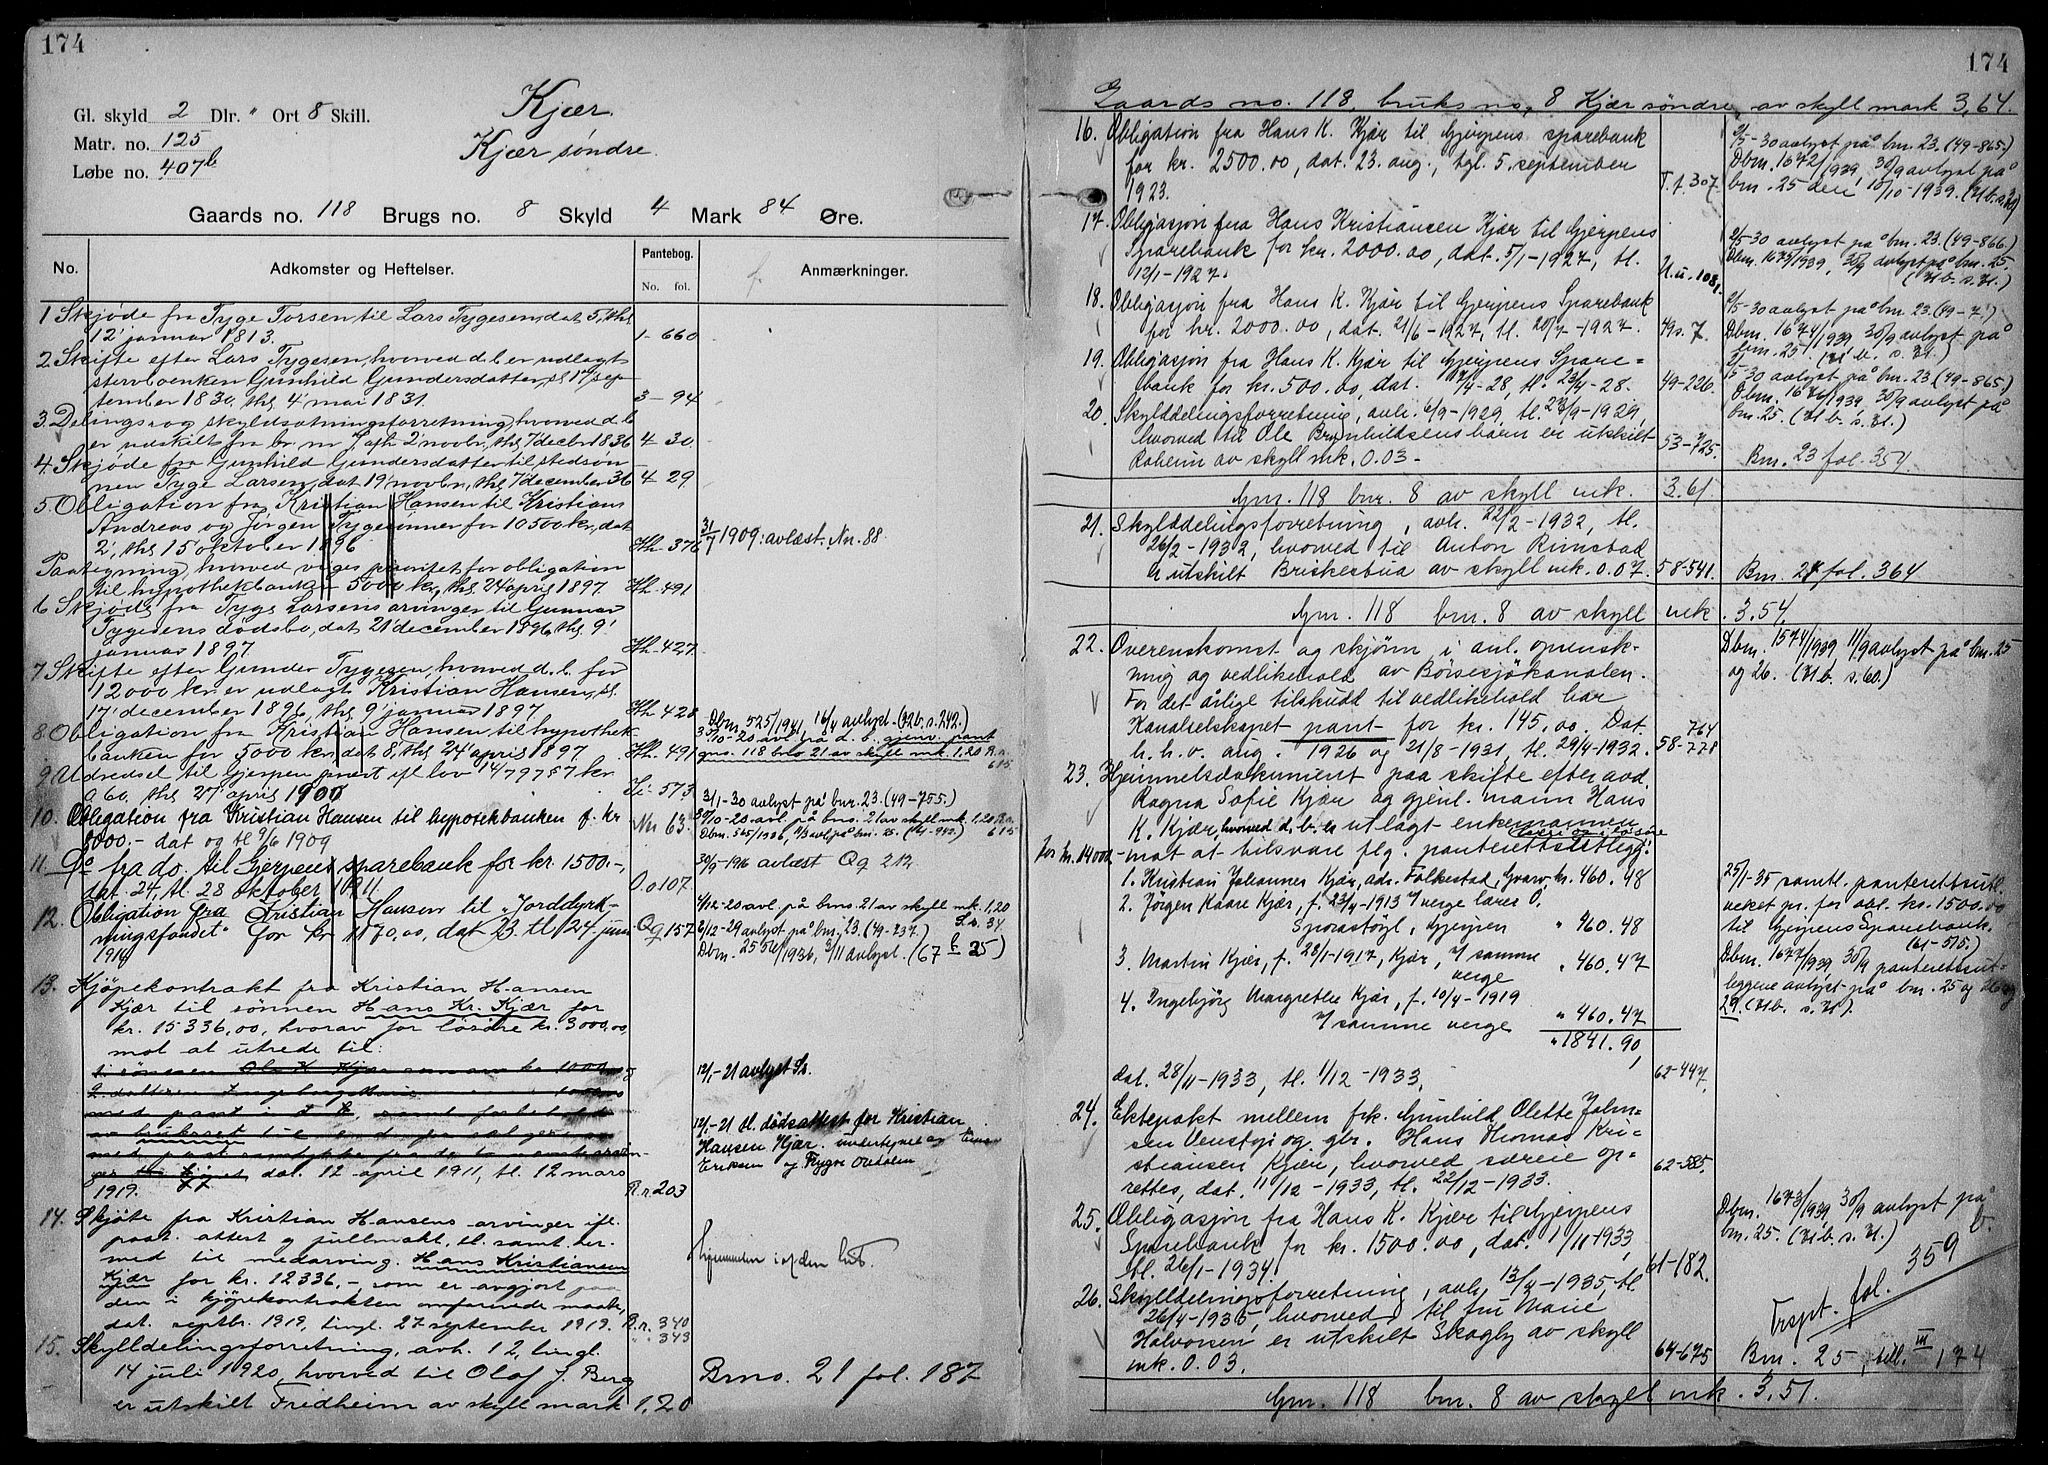 174
Gl. skyld 2 Dlr. " Ort 8 Skill.
Matr. no. 125
Løbe no. 407b
Kjær.
Kjær søndre.
Gaards no. 118 Brugs no. 8 Skyld 4 Mark 84 Øre.
No. Adkomster og Heftelser. Pantebog. No. fol. Anmærkninger.
1 Skjøde fra Tyge Torsen til Lars Tygesen, dat 5, thl
12' januar 1813. 1- 660
2. Skifte efter Lars Tygesen, hvorved d. b. er udlagt
stervboenken Gunhild Gundersdatter, sl. 17 sep-
tember 1830, thl 4' mai 1831. 3- 94
3. Delings og skyldsætningsforretning, hvorved d. b.
er udskilt fra br. nr 7, afh 2' novbr, thl 7 decbr 1836 4 30
4. Skjøde fra Gunhild Gundersdatter til stedsøn-
nen Tyge Larsen, dat 19' novbr, thl 7' december 36 4 29
5. Obligation fra Kristian Hansen til Kristians
Andreas og Jørgen Tygesønner for 10500 kr, dat
2', thl 15' oktober 1896. Hh. 376 31/7 1909: avlæst. Nn. 88.
Paategning, hvorved viges prioritet for obligation
til hypothekbanken 5000 kr, thl 24' april 1897. Hh. 491
6 Skjøde fra Tyge Larsens arvinger til Gunnar
Tygesens dødsbo, dat 21' december 1896, thl 9'
januar 1897. Hh. 427.
7 Skifte efter Gunder Tygesen, hvorved d. b. for
12000 kr. er udlagt Kristian Hansen, sl.
17' december 1896, thl 9' januar 1897. Hh. 428
8 Obligation fra Kristian Hansen til hypothek-
banken for 5000 kr, dat 8', thl 24' april 1897. Hh. 491
Dbm. 525/1941, 16/4 avlyst. (72 b. s. 242.)
30/10-20 avl. fra d. b. gjenv. pant
gno. 118 bno 21 av skyll mk. 1,20 R.r. 615
9 Udredsel til Gjerpen præst ifl lov 14/7 97 57 kr
a 60, thl 27' april 1900 Ii- 573
10. Obligation fra Kristian Hansen til hypotekbanken f. kr
8000.- dat og tl 9/6 1909 Nn 63.
31/1-30 avlyst på bnr. 23. (49-755.)
30/10-20 avl. på bno. 21 av skyll mk. 1,20 R.r. 615
11. Do fra do. til Gjerpens sparebank for kr. 1500.-,
dat. 24, tl. 28 oktober 1911. O.o 107. 30/9-1916 avlæst Qq 212.
12. Obligation fra Kristian Hansen til "Jorddyrk-
ningsfondet" for kr 1170,00, dat 23. tl 24 juni
1916 Qq 157
4/12-20 avl. på bno. 21 av skyll mk. 1,20 S.s. 34
6/12-29 avlyst på bnr. 23. (49-737.)
Dbm. 2556/1936, 3/11 avlyst. (67 b 25)
13. Kjøpekontrakt fra Kristian Hansen
Kjær til sønnen Hans Kr. Kjær for
kr. 15336,00, hvorav for løsøre kr. 3000,00,
mot at utrede til:
12/1-21 avlyst Ss.
12/1-21 tl. dødsattest for Kristian
Hansen Kjær.
dat. 12 april 1911, tl. 12 mars
1919. R.r. 203
14. Skjøte fra Kristian Hansens arvinger ifl.
med til medarving Hans Kristiansen
Kjær for kr. 12336,- som er avgjort paa
den i kjøpekontrakten omførende maate,
dat. septbr. 1919, tingl. 27 september 1919. R.r. 340
" 343
15. Skylddelingsforretning, avh. 12, tingl.
14 juli 1920, hvorved til Olaf J. Berg
er utskilt Fredheim av skyll mark 1,20 Brno. 21 fol. 187
174
Gaards no. 118, bruks no. 8 Kjær søndre, av skyll mark 3,64.
16. Obligation fra Hans K. Kjær til Gjerpens sparebank
for kr. 2500.00, dat. 23. aug., tgl. 5. september
1923. T.t. 307.
2/5-30 avlyst på bnr. 23. (49-865.)
Dbm. 1672/1939, 30/9 avlyst på
bnr. 25 den 10/10-1939. (71 b. s. 70)
17. Obligasjon fra Hans Kristiansen Kjær til Gjerpens
Sparebank for kr. 2000.00, dat. 5/1-1927, tl.
12/1-1927. U.u. 1081.
2/5-30 avlyst på bnr. 23. (49-866.)
Dbm. 1675/1939, 30/9 avlyst på bnr. 25.
(71 b. s. 71.)
18. Obligasjon fra Hans K. Kjær til Gjerpens Sparebank
for kr. 2000.00, dat. 21/6-1927, tl. 20/7-1927. 49 s. 7.
2/5-30 avlyst på bnr. 23. (49-7.)
Dbm. 1674/1939, 30/9 avlyst på
bnr. 25. (71 b. s. 71.)
19. Obligasjon fra Hans K. Kjær til Gjerpens Spare=
bank for kr. 500.00, dat. 17/4-28, tl. 23/4-28. 49-226.
2/5-30 avlyst på bnr. 23 (49-865.)
Dbm. 1676/1939, 30/9 avlyst på
bnr. 25. (71 b. s. 71.)
20. Skylddelingsforretning, avh. 6/9-1929, tl. 23/9-1929,
hvorved til Ole Brynhildsens barn er utskilt
Roheim av skyll mk. 0.03.- 53-725. Bnr. 23 fol. 354
Gnr. 118 bnr. 8 av skyll mk. 3.61.
21. Skylddelingsforretning, avh. 22/2-1932, tl.
26/2-1932, hvorved til Anton Rimstad
er utskilt Briskesbua av skyll mk. 0.07. 58-541. Bnr. 24 fol. 364
Gnr. 118 bnr. 8 av skyll mk. 3.54.
22. Overenskomst og skjønn i anl. opensk-
ning og vedlikehold av Børsesjøkanalen.
For det årlige tilskudd til vedlikehold har
Kanalselskapet pant for kr. 145.00. Dat.
h. h. v. aug. 1926 og 21/8-1931, tl. 29/4-1932. 58- 764 778
Dbm. 1574/1939, 11/9 avlyst på bnr. 25
og 26. (71 b. s. 60.)
23. Hjemmelsdokument paa skifte efter avd.
Ragna Sofie Kjær og gjenl. mann Hans
K. Kjær, hvorved d. b. er utlagt enkemannen
for kr. 14000,- mot at tilsvare flg. panterettsutlegg:
1. Kristian Johannes Kjær, adr. Folkestad, Gvarv, kr. 460.48
2. Jørgen Kaare Kjær, f. 23/4-1913 v/ verge lærer O.
Sporastøyl, Gjerpen " 460.48
3. Martin Kjær, f. 28/1-1917, Kjær, v/ samme
verge " 460.47
4. Ingebjørg Margrethe Kjær, f. 10/4-1919
v/ samme verge " 460.47
" 1841.90
dat. 28/11-1933, tl. 1/12-1933. 62-447.
25/1-35 samtl. panterettsutl.
veket pr. for obl. kr. 1500.00
til Gjerpens Sparebank.
(61-515.)
Dbm. 1677/1939, 30/9 panterettsut-
leggene avlyst på bnr. 25 og 26 og
29. (71 b. s. 71).
24. Ektepakt mellem frk. Gunhild Olette John-
sen Venstøp og gbr. Hans Thomas Kri-
stiansen Kjær, hvorved særeie op-
rettes, dat. 11/12-1933, tl. 22/12-1933. 62-585.
25. Obligasjon fra Hans K. Kjær til Gjerpens
Sparebank for kr. 1500.00, dat. 1/11-1933,
tl. 26/1-1934. 61-182.
Dbm. 1673/1939, 30/9 avlyst på
bnr. 25. (71 b. s. 71.)
26. Skylddelingsforretning, avh. 13/4-1935, tl.
26/4-1935, hvorved til fru Marie
Halvorsen er utskilt Skogly av skyll
mk. 0.03. 64-675 Bnr. 25, till. III 174
Trspt. fol. 359 b.
Gnr. 118 bnr. 8 av skyll mk. 3,51.